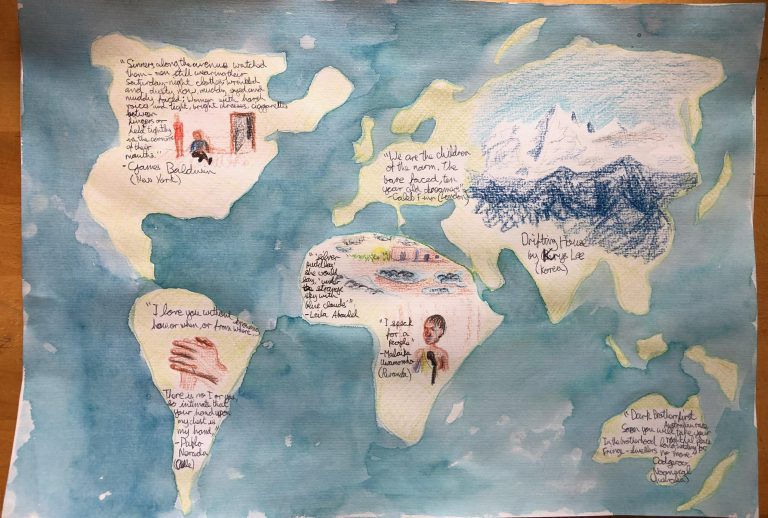 "Sinners along the avenue watched
them - men still wearing their
Saturday-night clothes, wrinkled
and dusty now, muddy eyed and
muddy faced; women with harsh
voices and tight, bright dresses, cigarettes
between
fingers or
held tightly
in the corners
of their
mouths."
- James Baldwin
(New York)
"We are the children
of the norm. The
bare faced, ten
year old dreamers"
- Caleb Femi (London)
Drifting House
by Krys Lee
(Korea)
puddles'
she would
say, 'under
the strange
sky with
blue clouds'"
- Leila Aboulela
"I speak
for a
People"
- Malaika
Uwamahoro
(Rwanda)
"I love you without knowing
how or when, or from where
There is no I or you,
so intimate that
your hand upon
my chest is
my hand
- Pablo
Neruda
(Chile)
"Dark brother, first
Australian race,
Soon you will take your
rightful place
In the brotherhood long waiting for
Fringe-dwellers no more."
Oodgeroo
Noonuccal
(Australia)